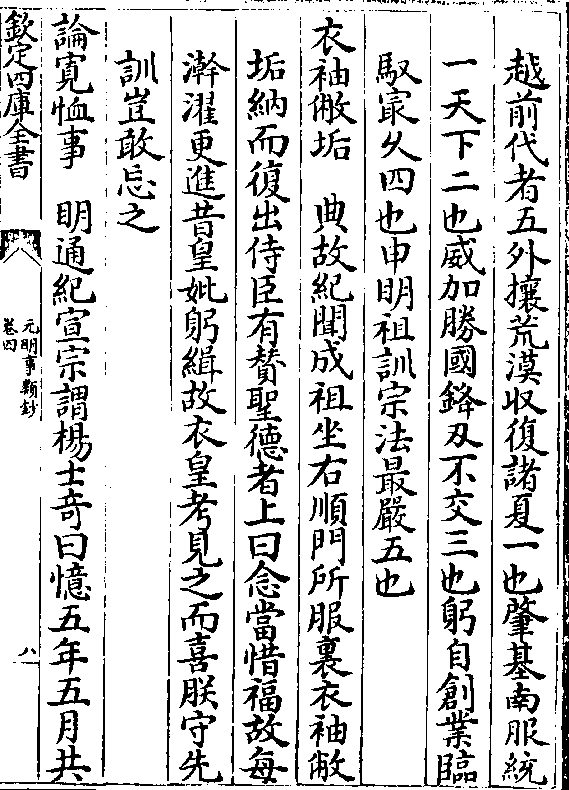 越前代者五外攘荒漠收復諸夏一也肇基南服統
一天下二也威加勝國鋒刃不交三也躬自創業臨
馭最久四也申明祖訓宗法最嚴五也
衣袖敝垢　典故紀聞成祖坐右順門所服裏衣袖敝
垢納而復出侍臣有賛聖德者上曰念當惜福故每
澣濯更進昔皇妣躬緝故衣皇考見之而喜朕守先
訓豈敢忘之
論寛恤事　明通紀宣宗謂楊士奇曰憶五年五月共
欽定四庫全書
元明事類鈔
卷四
八